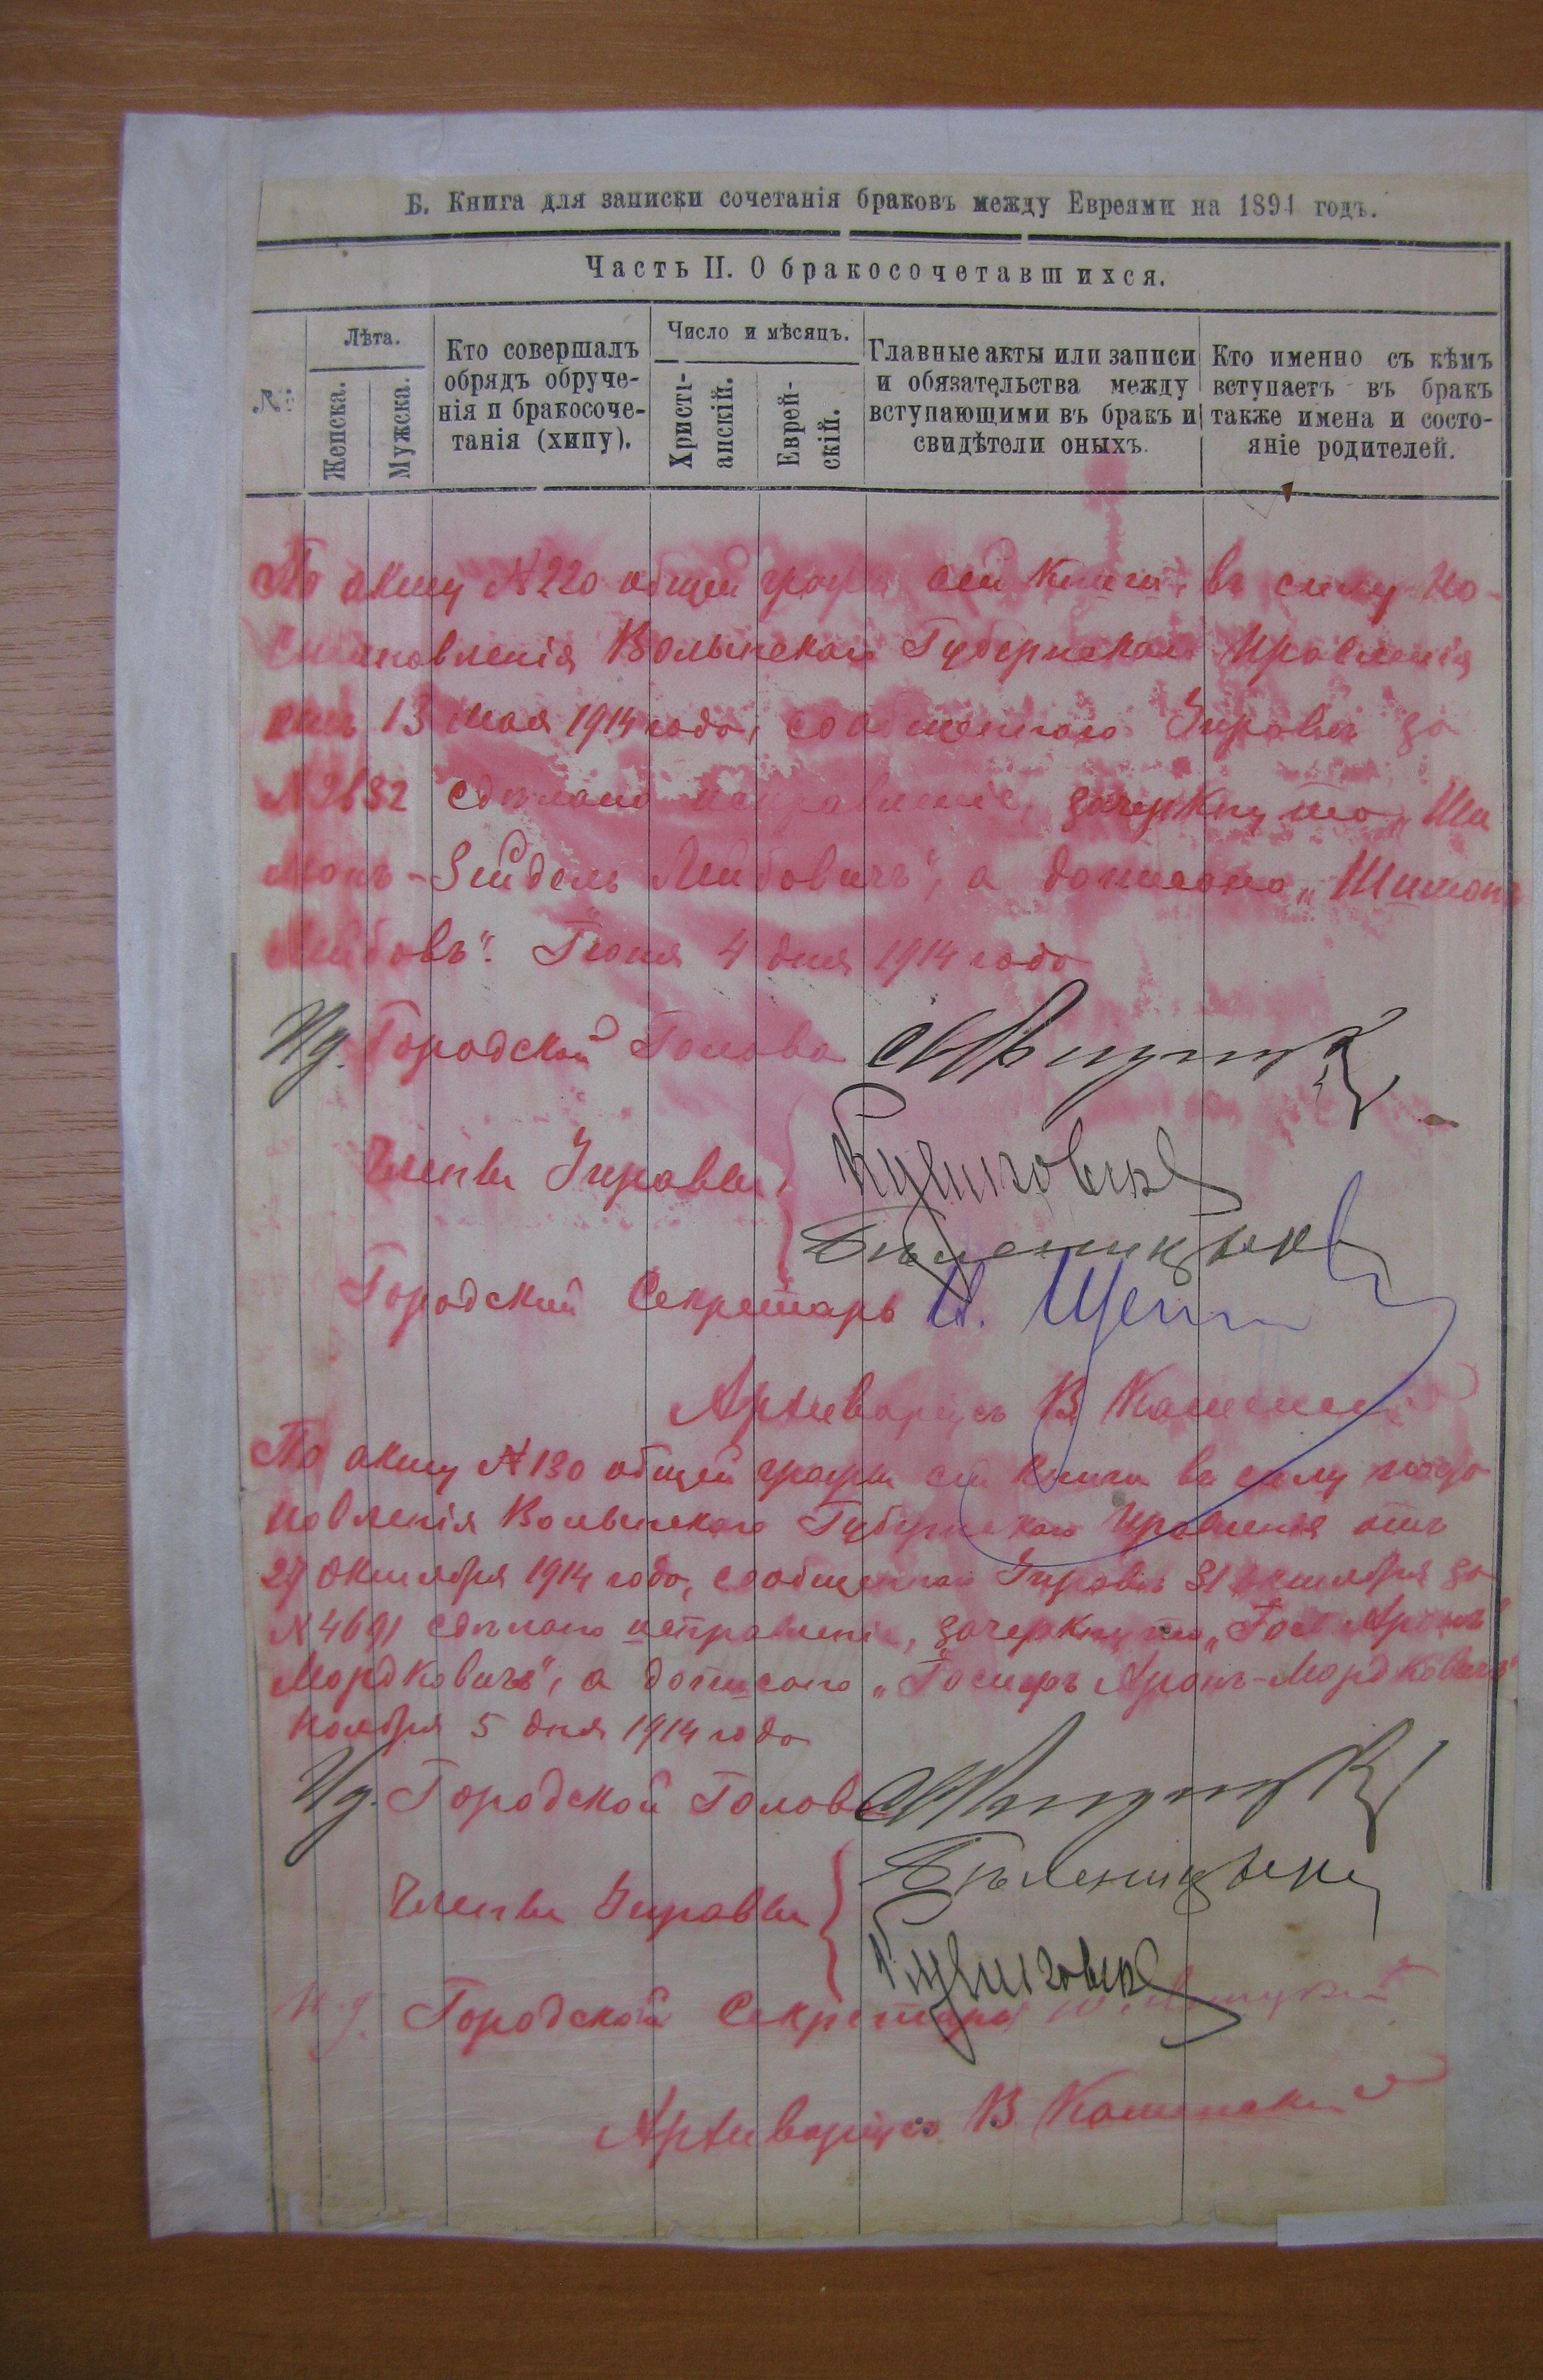 Б. Книга для записки сочетанія браковъ между Евреями на 1894 годъ.
Часть II. О бракосочетавшихся.
№
Лѣта.
Женска.
Мужска.
Кто совершалъ
обрядъ обруче-
нія и бракосоче-
танія (хипу).
Число и мѣсяцъ.
Христі-
анскій.
Еврей-
скій.
Главные акты или записи
и обязательства между
вступающими въ бракъ и
свидѣтели оныхъ.
Кто именно съ кѣмъ
вступаетъ въ бракъ
также имена и состо-
яніе родителей.
По акту №220 общей графы сей книги, въ силу по-
становленія Волынскаго Губернскаго Правленія
отъ 13 мая 1914 года, сообщеннаго Управѣ за
№ 2632 сдѣлано исправленіе, зачеркнуто „Ши
монъ-Зейдель Лейбовичъ", а дописано „Шимонъ
Лейбовъ". Іюня 4 дня 1914 года
Ид. Городской Голова
Члены Управы
Городской Секретарь
Архиваріусъ В
По акту №130 общей графы сей книги въ силу
новленія Волынскаго Губернскаго Правленія отъ
27 октября 1914 года, сообщеннаго Управѣ 31 октября за
№ 4691 сдѣлано исправленіе, зачеркнуто „Іос Аронъ
Мордковичъ", а дописано „Іосифъ Аронъ-Мордковичъ"
Ноября 5 дня 1914 года
Ид. Городской Голова
Члены Управы
И.д. Городской Секретарь
Архиваріусъ В